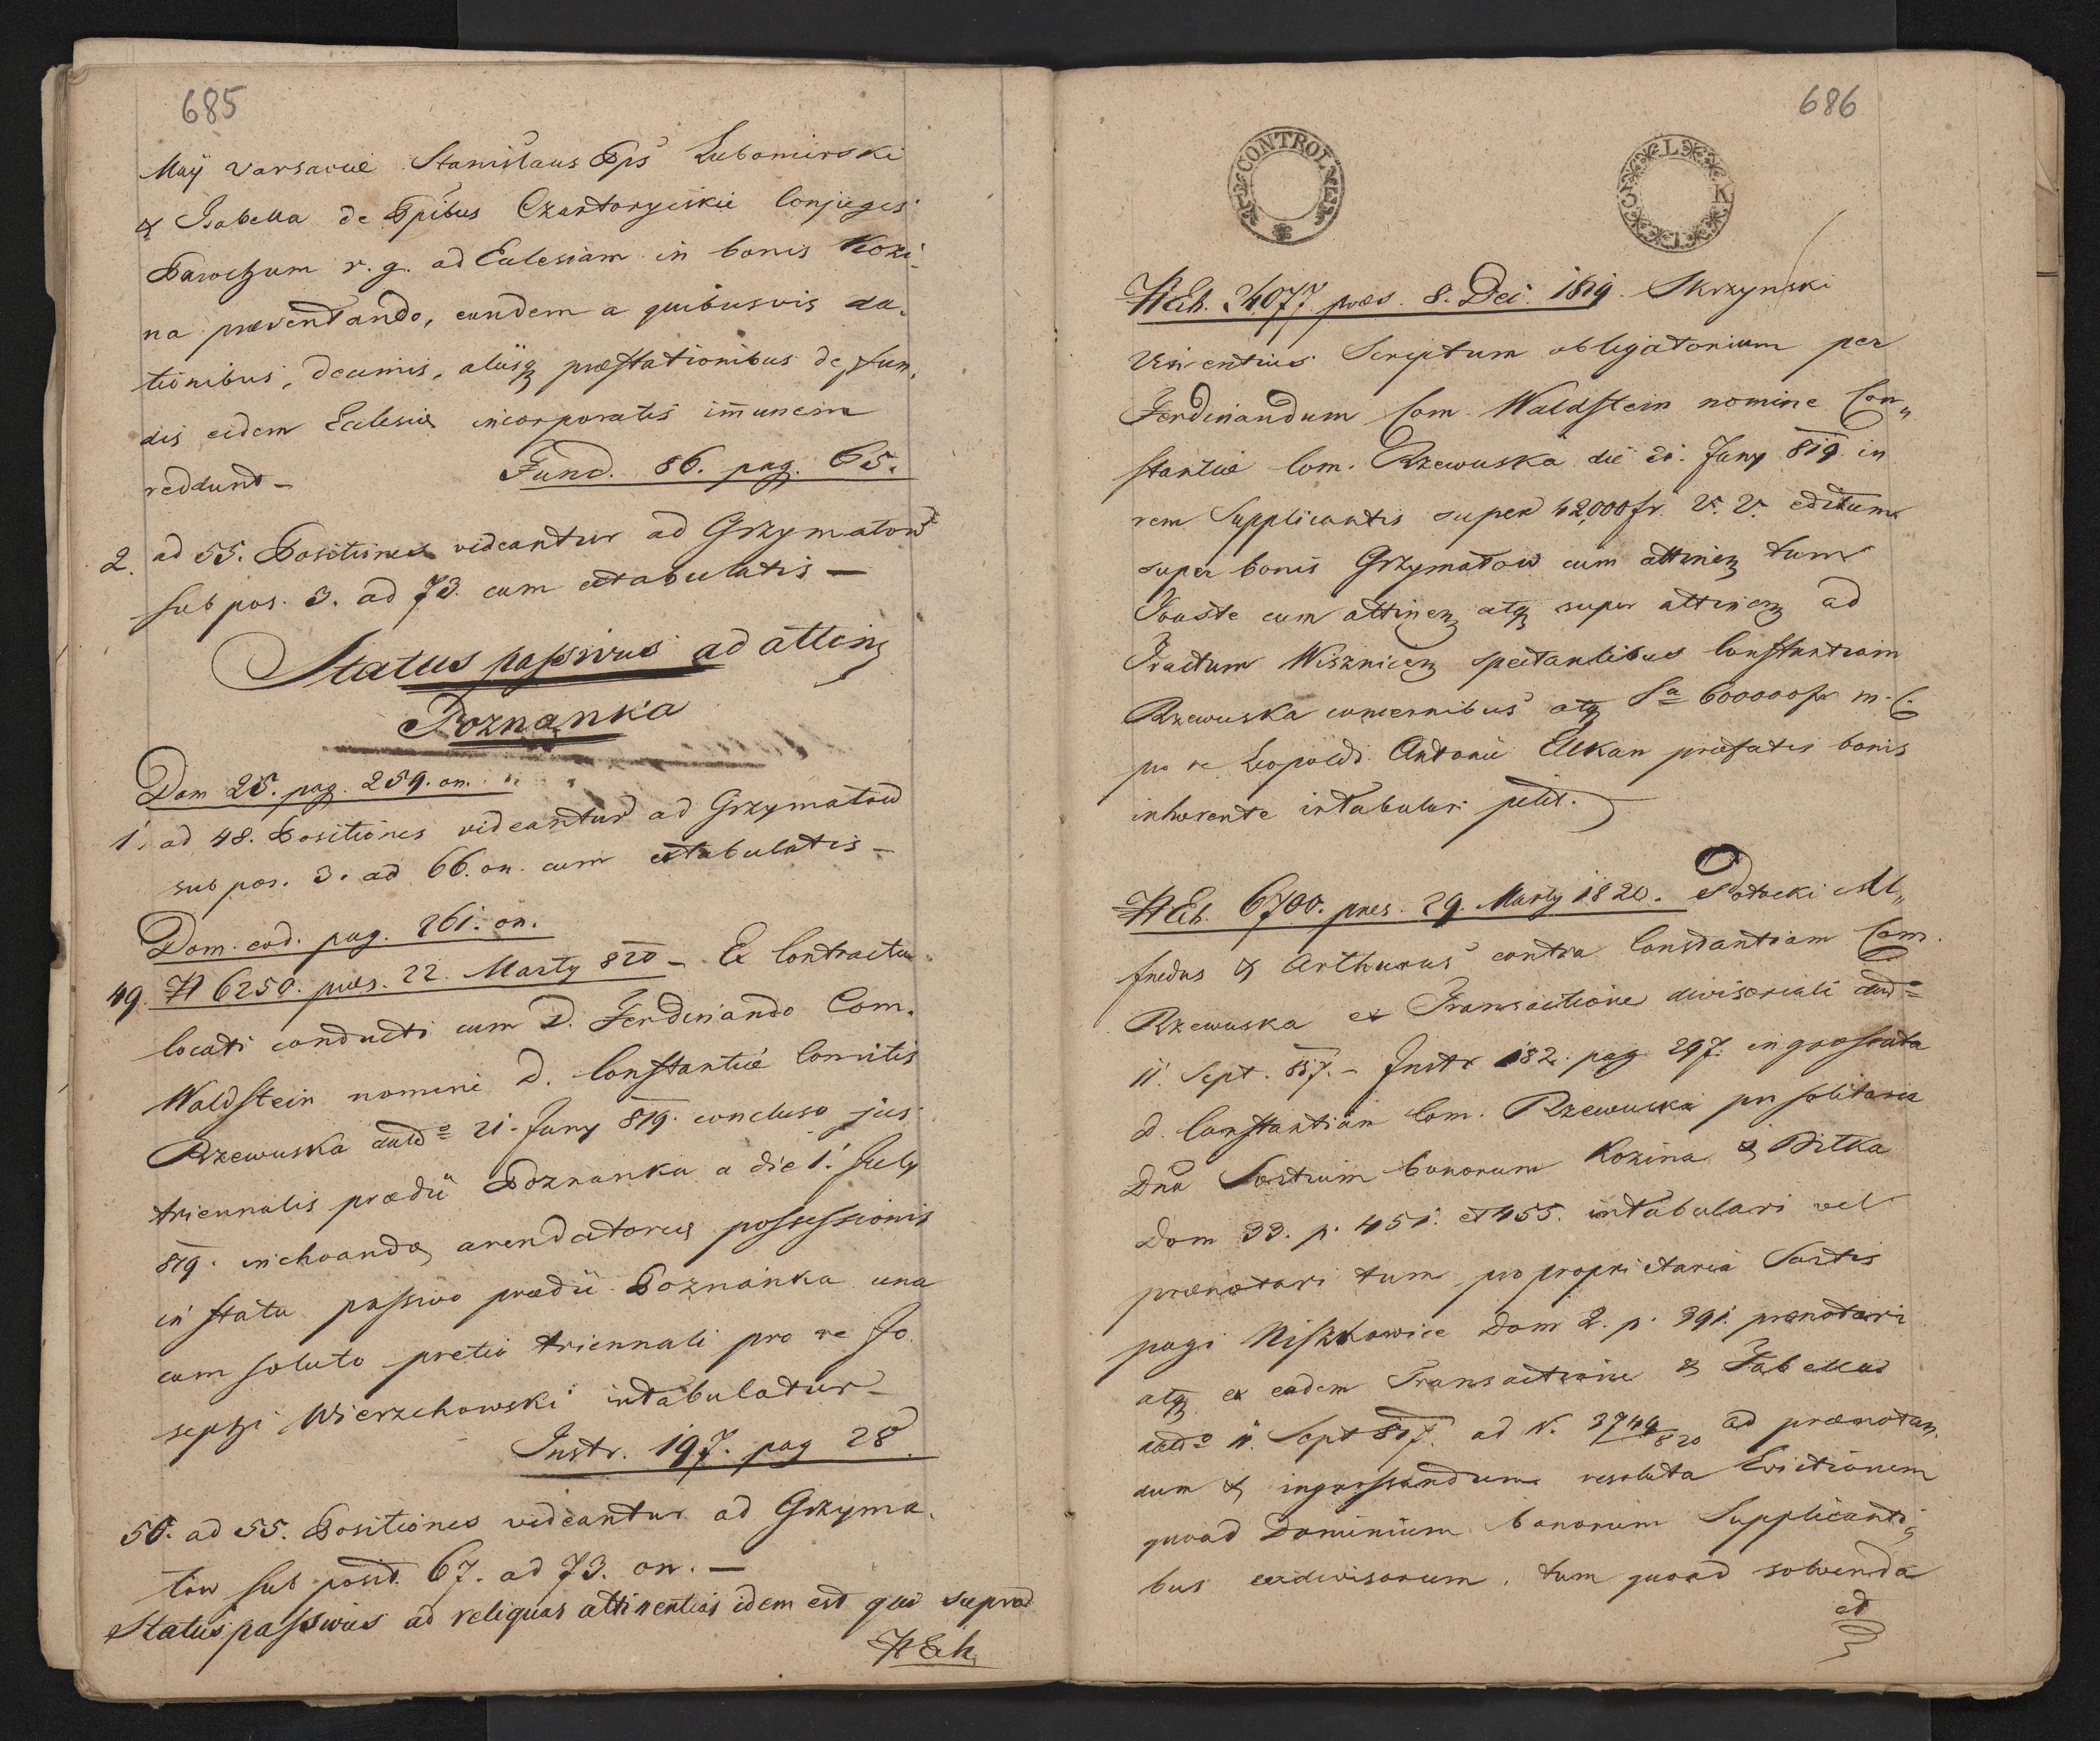 685
Maÿ Varsaviæ Stanislaus Pps Lubomirski
& Isabella de Ppibus Czartoryiskie Conjuges
Parochum r. g. ad Eclesiam in bonis Kozi-
na præventando, eundem a quibusvis da-
tionibus, decimis, aliisq præstationibus de fun-
dis eidem Eclesiæ incorporatis im̄unem
reddunt –
Fund. 86. pag. 65.
2. ad 55. Positiones videantur ad Grzymatow
sub pos. 3. ad 73. cum extabulatis –
Status passivus ad attin
Poznanka
Dom 25. pag. 259. on.
1. ad 48. Positiones videantur ad Grzymatow
sub pos. 3. ad 66. on. cum extabulatis –
Dom. eod. pag. 261. on.
49. N 6250. præs. 22. Marty 820 – Ex Contractu
locati conducti cum D. Ferdinando Com.
Waldstein nomine D. Constantiæ Comitis
Rzewuska ddto 21. Juny 819. concluso jus
triennalis prædii Poznanka a die 1. July
819. inchoandæ arendatoriæ possessionis
in statu passivo prædii Poznanka una
cum soluto pretio triennali pro re Jo-
sephi Wierzchowski intabulatur –
Instr. 197. pag 28.
50. ad 55. Positiones videantur ad Grzyma-
tow sub posit. 67. ad 73. on. –
Status passivus ad reliquas attinentias idem est qui supra
N Exh.
686
CONTROL
N Exh. 24077 præs. 8. Dec. 1819. Skrzynski
Vincentius Scriptum obligatorium per
Ferdinandum Com Waldstein nomine Con-
stantiæ Com. Rzewuska die 21. Juny 819 in
rem Supplicantis super 42,000 fr. V. V. editum
super bonis Grzymatow cum attinen tum
Touste cum attinen atq super attinen ad
Tractum Wisznicen spectantibus Constantiam
Rzewuska concernibus atq Sa 600000 fr m. C.
pro re Leopoldi Antonii Elkan præfatis bonis
inhærente intabulari petit.
N Exh. 6700. præs. 29. Marty 1820. Potocki Al-
fredus & Arthurus contra Constantiam Com.
Rzewuska ex Transactione divisoriali ddto
11. Sept. 817. – Instr 182. pag 297. ingrossata
D. Constantiam Com. Rzewuska pro solitaria
Dna Sortium bonorum Kozina & Bilka
Dom 33. p. 451. et 455. intabulari vel
prænotari tum pro proprietaria Sortis
pagi Niszkowice Dom 2. p. 391. prænotari
atq ex eadem Transactione & Tabellas
ddto 11. Sept 817. ad N. 3749/820 ad prænotan-
dum & ingrossandum resoluta Evictionem
quoad Dominium bonorum Supplicanti-
bus exdivisorum, tum quoad solvenda
et